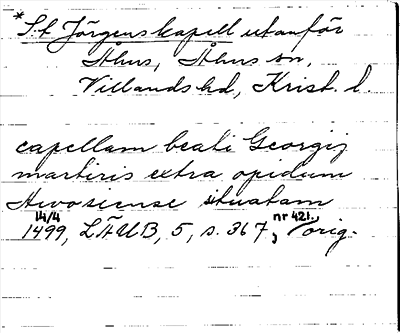 *S:t Jörgenskapell utanför
Åhus, Åhus sn,
Villands hd, Krist. l.
capellam beati Georgij
martiris extra opidum
Awosiense situatam
14/4 nr 421.,
1499, LÄUB, 5, s. 367, orig.